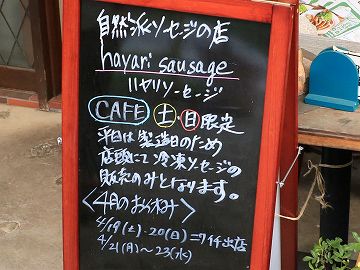 自然派ソーセージの店
hayari sausage
ハヤリソーセージ
CAFE 土・日限定
平日は製造日のため
店頭にて冷凍ソーセージの
販売のみとなります。
〈4月のお休み〉
4/19(土)・20(日)=ワイ出店
4/21(月)〜23(水)